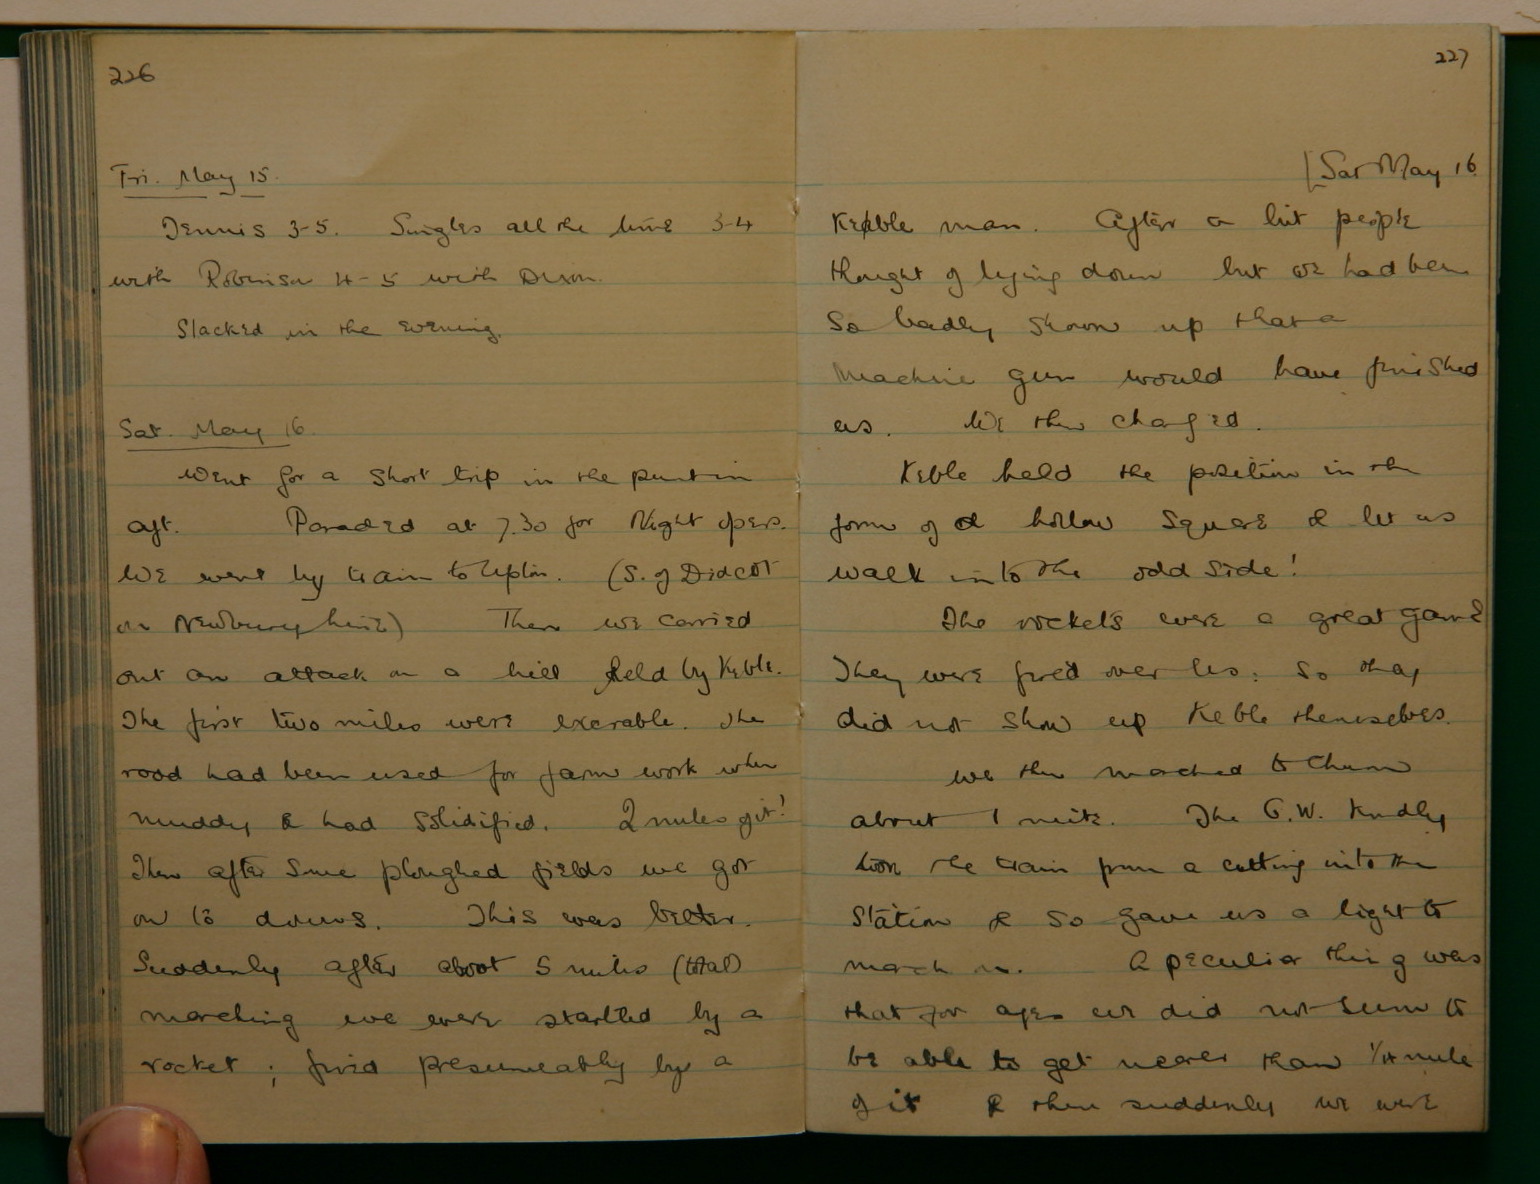 226
Fri. May 15.
Tennis 3-5. Singles all the time 3-4
with Robinson 4-5 with Dixon.
Slacked in the evening.
Sat. May 16.
Went for a short trip in the punt in
aft. Paraded at 7.30 for Night opers.
We went by train to Upton. (S. of Didcot
on Newbury line) Then we carried
out an attack on a hill held by Keble.
The first two miles were execrable. The
road had been used for farm work when
muddy & had solidified. 2 miles of it!
Then after some ploughed fields we got
on to downs. This was better.
Suddenly after about 5 miles (total)
marching we were startled by a
rocket; fired presumeably by a
227
[Sat May 16
Keble man. After a bit people
thought of lying down but we had been
so badly shown up that a
machine gun would have finished
us. We then charged.
Keble held the position in the
form of a hollow square & let us
walk into the odd side!
The rockets were a great game
They were fired over us: so they
did not show up Keble themselves.
We then marched to Churn
about 1 mile. The G.W. kindly
took the train from a cutting into the
station & so gave us a light to
march on. A peculiar thing was
that for ages we did not seem to
be able to get nearer than 1/4 mile
of it & then suddenly we were